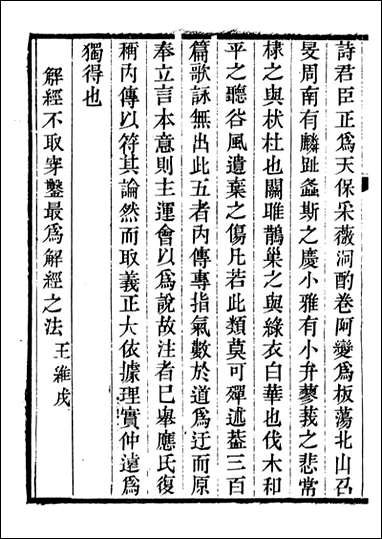 詩君臣正爲天保采薇泂酌卷阿變爲板蕩北山召
旻周南有麟趾螽斯之慶小雅有小弁蓼莪之悲常
棣之與杕杜也關雎鵲巢之與綠衣白華也伐木和
平之聽谷風遺棄之傷凡若此類莫可殫述蓋三百
篇歌詠無出此五者內傳專指氣數於道爲迂而原
奉立言本意則主運會以爲說故注者已舉應氏復
稱內傳以符其論然而取義正大依據理實仲遠爲
獨得也
解經不取穿鑿最爲解經之法 王維戊